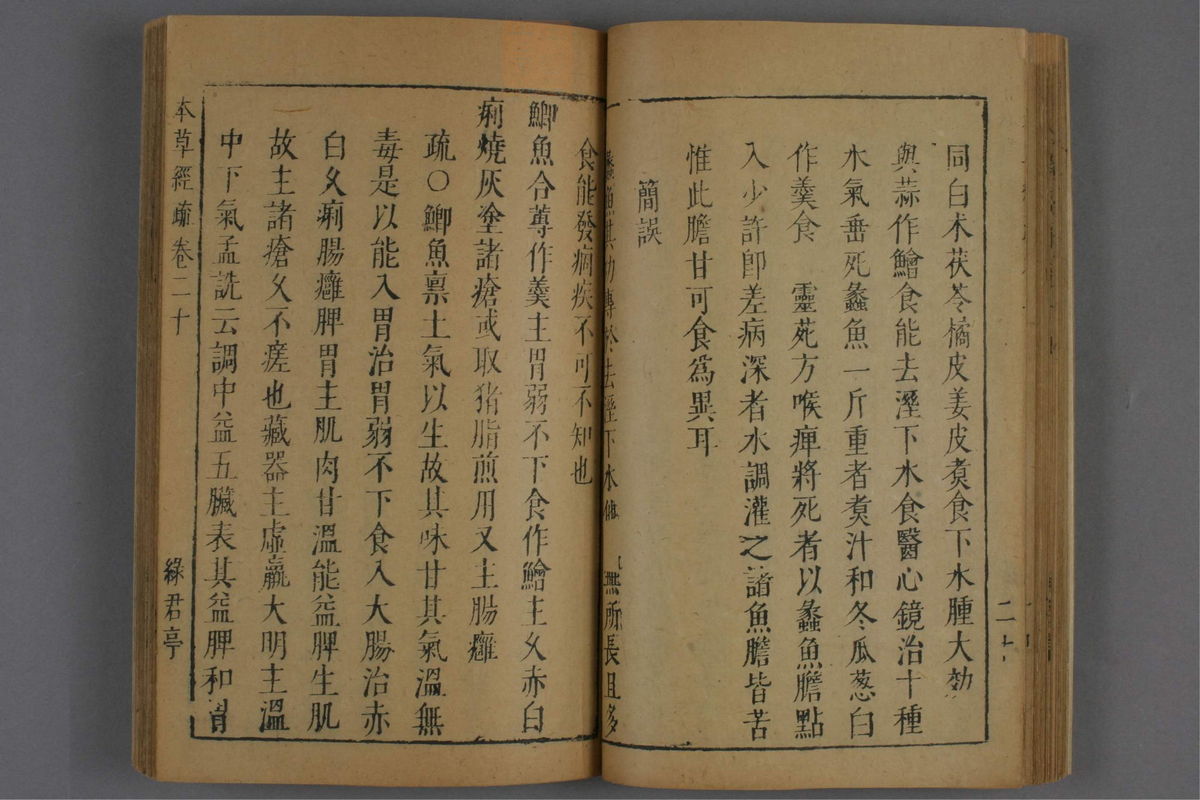 同白朮茯苓橘皮姜皮煑食下水腫大効
與蒜作鱠食能去溼下水食醫心鏡治十種
水氣垂死蠡魚一斤重者煑汁和冬瓜葱白
作羹食　靈苑方喉痺將死者以蠡魚膽點
入少許卽差病深者水調灌之諸魚膽皆苦
惟此膽甘可食爲異耳
簡誤
蠡魚其功專於去溼下水他無所長且多
食能發痼疾不可不知也
鯽魚合蓴作羹主胃弱不下食作鱠主久赤白
痢燒灰塗諸瘡或取猪脂煎用又主腸癰
疏○鯽魚稟土氣以生故其味甘其氣溫無
毒是以能入胃治胃弱不下食入大腸治赤
白久痢腸癰脾胃主肌肉甘溫能益脾生肌
故主諸瘡久不瘥也藏器主虛羸大明主溫
中下氣孟詵云調中益五臟表其益脾和胃
本草經疏卷二十
綠君亭